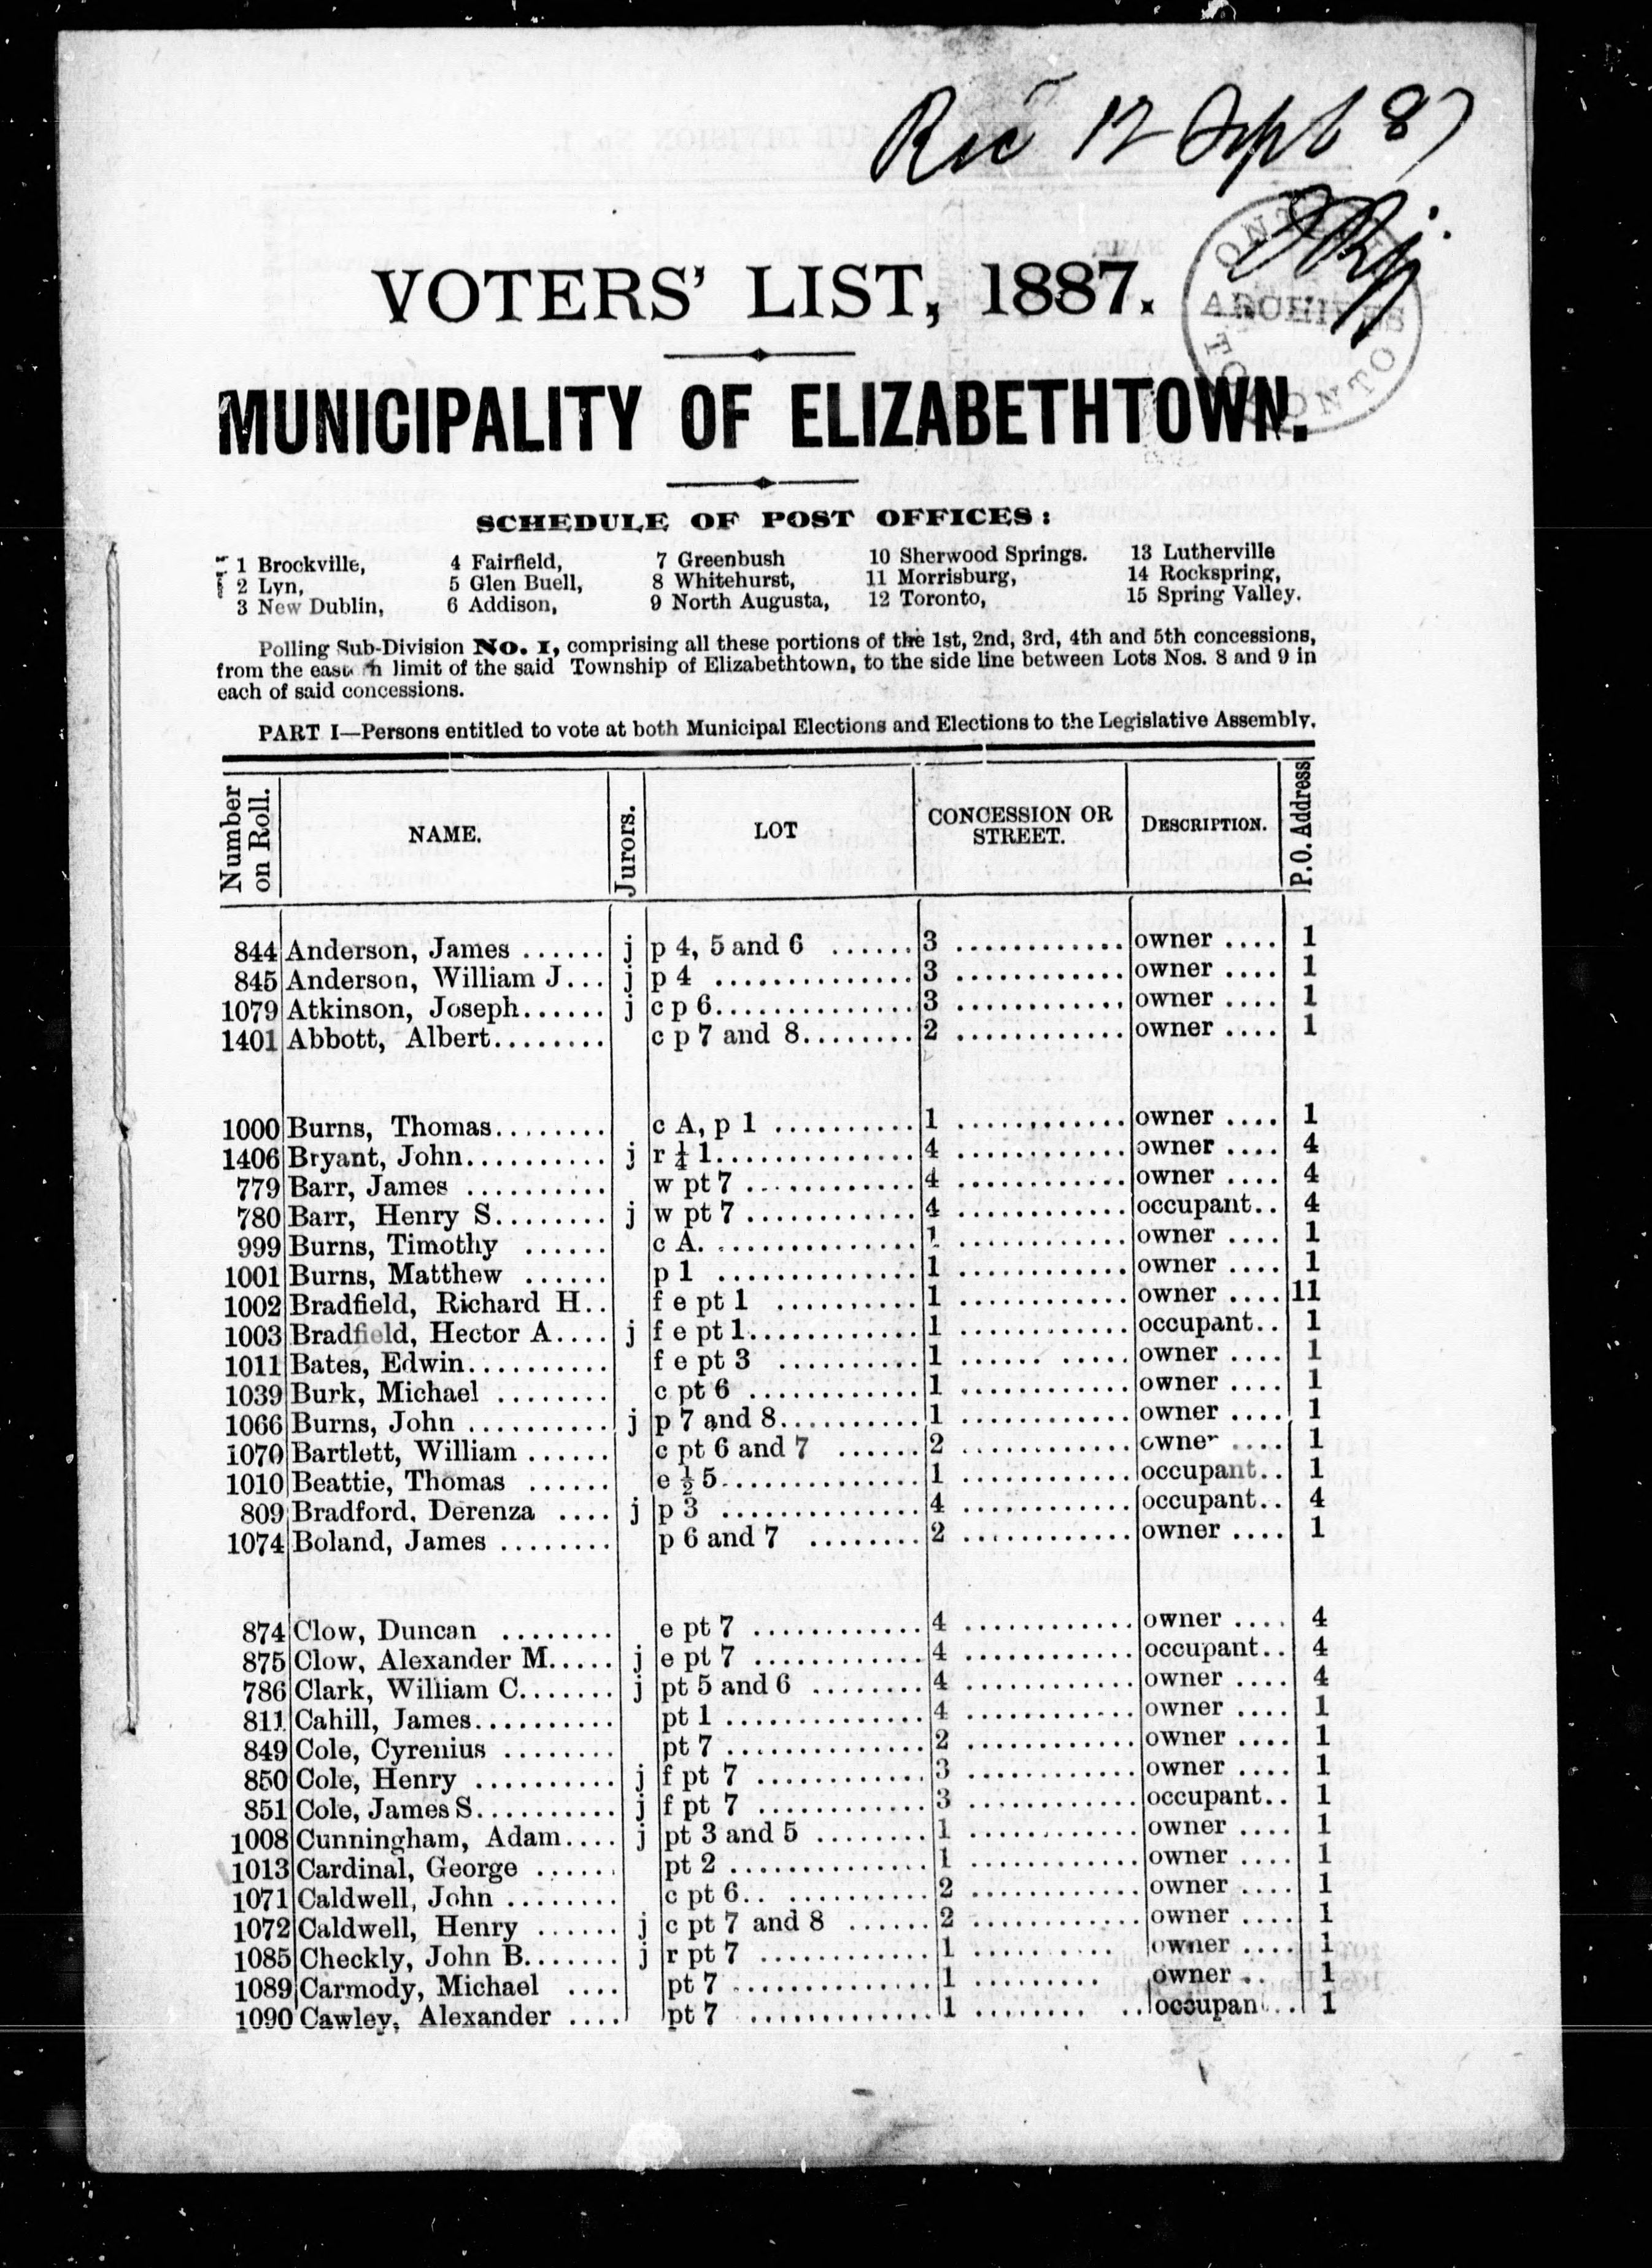 Rec 12 Sept 87
ONTARIO ARCHIVES TORONTO
VOTERS' LIST, 1887.
MUNICIPALITY OF ELIZABETHTOWN.
SCHEDULE OF POST OFFICES:
1 Brockville, 4 Fairfield, 7 Greenbush 10 Sherwood Springs. 13 Lutherville
2 Lyn, 5 Glen Buell, 8 Whitehurst, 11 Morrisburg, 14 Rockspring,
3 New Dublin, 6 Addison, 9 North Augusta, 12 Toronto, 15 Spring Valley.
Polling Sub-Division No. 1, comprising all these portions of the 1st, 2nd, 3rd, 4th and 5th concessions,
from the east rn limit of the said Township of Elizabethtown, to the side line between Lots Nos. 8 and 9 in
each of said concessions.
PART I—Persons entitled to vote at both Municipal Elections and Elections to the Legislative Assembly.
Number on Roll. NAME. Jurors. LOT CONCESSION OR STREET. DESCRIPTION. P.O. Address
844 Anderson, James ...... j p 4, 5 and 6 ...... 3 ............ owner .... 1
845 Anderson, William J... j p 4 .............. 3 ............ owner .... 1
1079 Atkinson, Joseph...... j c p 6.............. 3 ............ owner .... 1
1401 Abbott, Albert........ c p 7 and 8........ 2 ............ owner .... 1
1000 Burns, Thomas........ c A, p 1 .......... 1 ............ owner .... 1
1406 Bryant, John.......... j r ¼ 1.............. 4 ............ owner .... 4
779 Barr, James .......... w pt 7 ............ 4 ............ owner .... 4
780 Barr, Henry S........ j w pt 7 ............ 4 ............ occupant.. 4
999 Burns, Timothy ...... c A. .............. 1 ............ owner .... 1
1001 Burns, Matthew ...... p 1 .............. 1 ............ owner .... 1
1002 Bradfield, Richard H.. f e pt 1 .......... 1 ............ owner .... 11
1003 Bradfield, Hector A.... j f e pt 1............ 1 ............ occupant.. 1
1011 Bates, Edwin.......... f e pt 3 .......... 1 ...... ..... owner .... 1
1039 Burk, Michael ........ c pt 6 ............ 1 ............ owner .... 1
1066 Burns, John .......... j p 7 and 8.......... 1 ............ owner .... 1
1070 Bartlett, William ...... c pt 6 and 7 ...... 2 ............ owner .... 1
1010 Beattie, Thomas ...... e ½ 5.............. 1 ............ occupant.. 1
809 Bradford, Derenza .... j p 3 .............. 4 ............ occupant.. 4
1074 Boland, James ........ p 6 and 7 ........ 2 ............ owner .... 1
874 Clow, Duncan ........ e pt 7 ............ 4 ............ owner .... 4
875 Clow, Alexander M..... j e pt 7 ............ 4 ............ occupant.. 4
786 Clark, William C....... j pt 5 and 6 ........ 4 ............ owner .... 4
811 Cahill, James.......... pt 1 .............. 4 ............ owner .... 1
849 Cole, Cyrenius ........ pt 7 .............. 2 ............ owner .... 1
850 Cole, Henry .......... j f pt 7 ............ 3 ............ owner .... 1
851 Cole, James S.......... j f pt 7 ............ 3 ............ occupant.. 1
1008 Cunningham, Adam.... j pt 3 and 5 ........ 1 ............ owner .... 1
1013 Cardinal, George ...... pt 2 .............. 1 ............ owner .... 1
1071 Caldwell, John ........ c pt 6.. .......... 2 ............ owner .... 1
1072 Caldwell, Henry ...... j c pt 7 and 8 ...... 2 ............ owner .... 1
1085 Checkly, John B....... j r pt 7 ............ 1 .......... owner .... 1
1089 Carmody, Michael .... pt 7 .............. 1 ......... owner .. 1
1090 Cawley, Alexander .... pt 7 ............. 1 ........ .. occupan .. 1